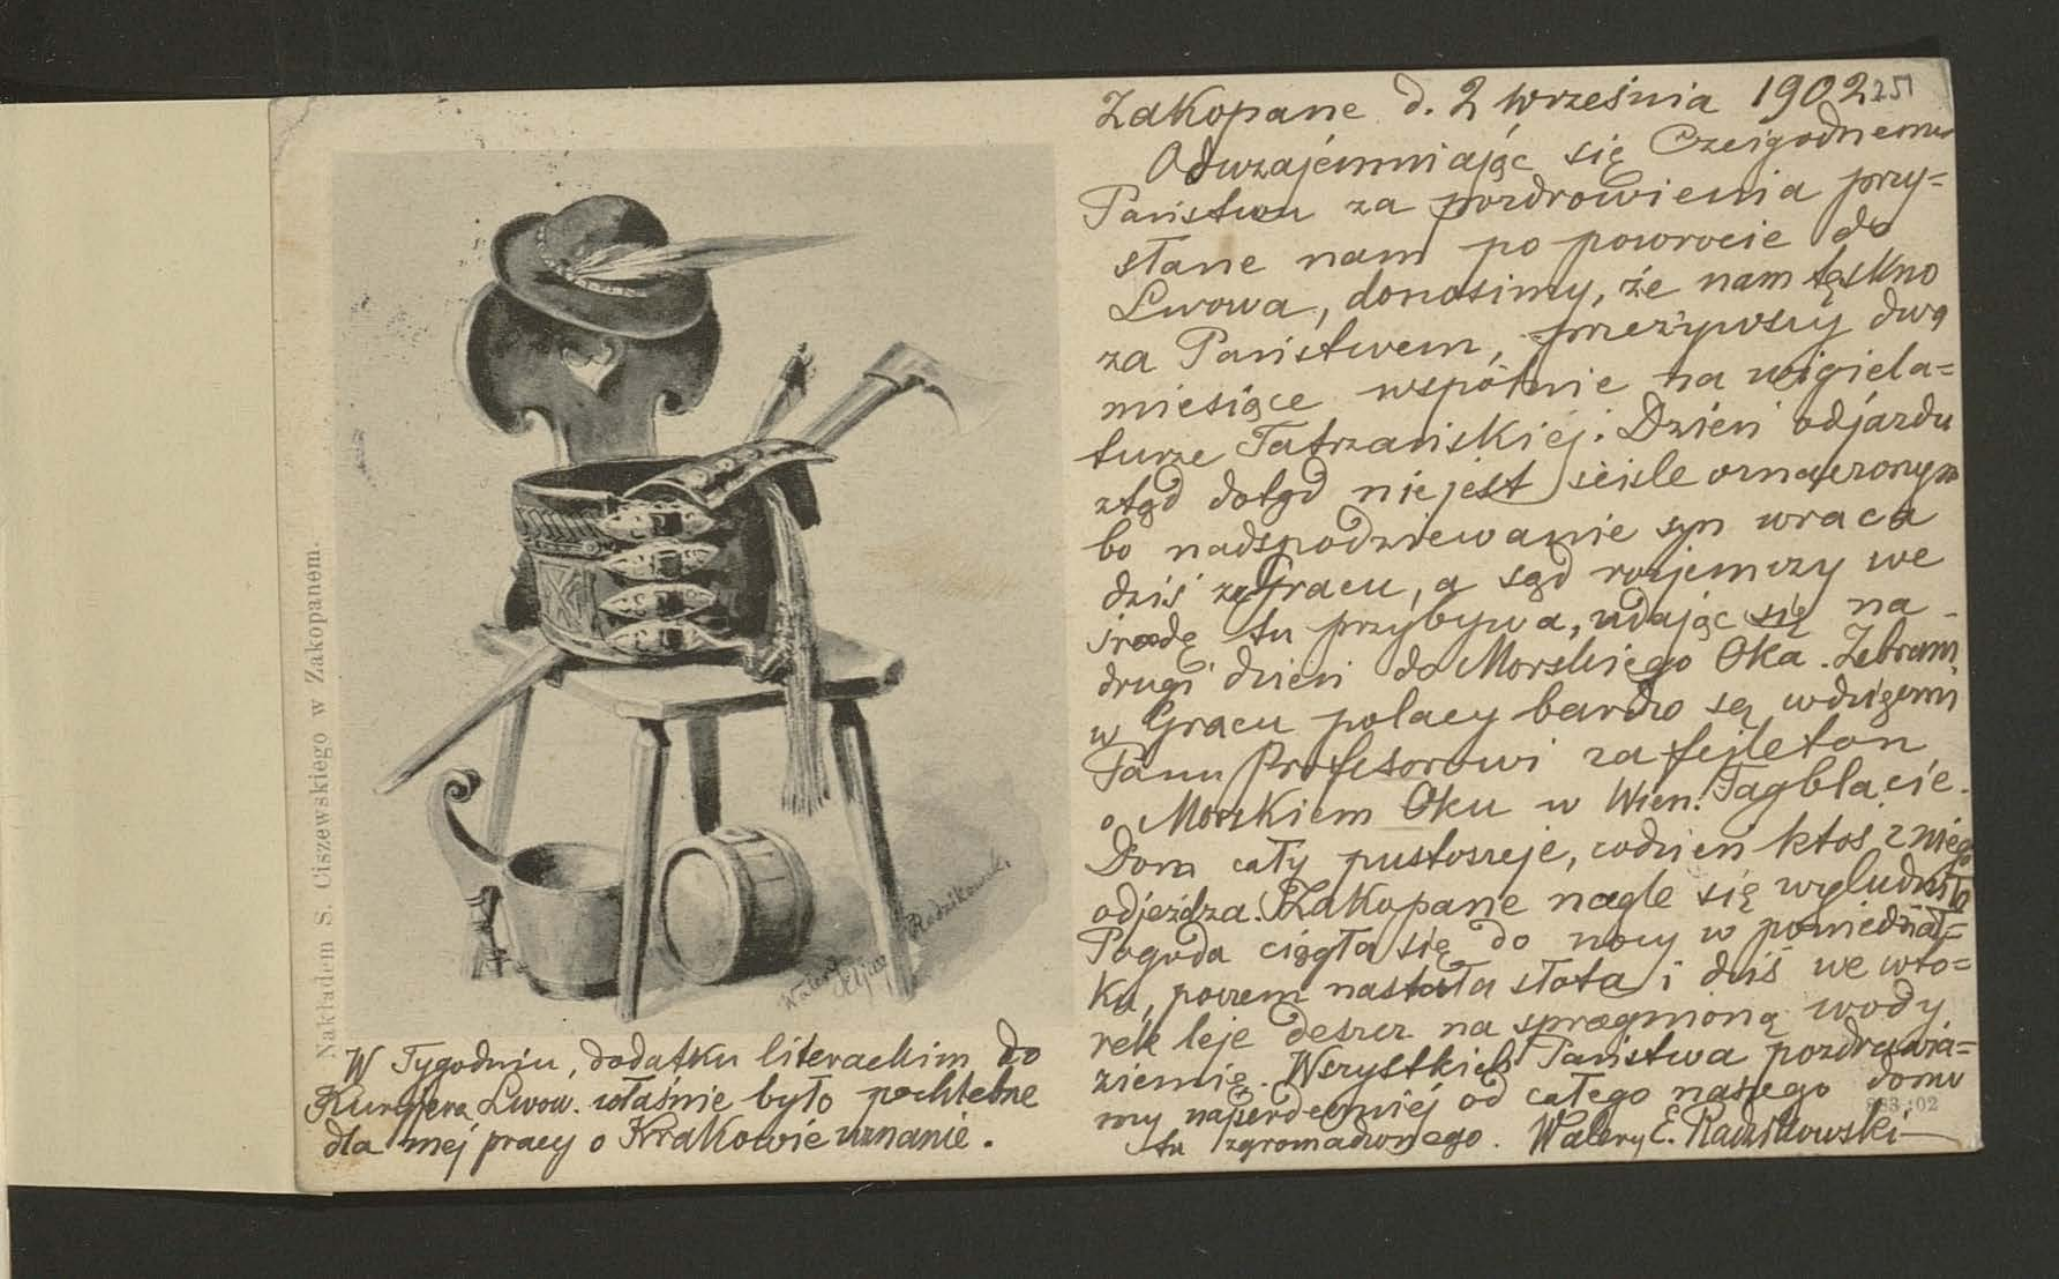 Zakopane d. 2 września 1902
251
Odwzajemniając się Czcigodnemu
Państwu za pozdrowienia przy=
słane nam po powrocie do
Lwowa, donosimy, że nam tęskno
za Państwem, przeżywszy dwa
miesiące wspólnie na wigiela=
turze Tatrzańskiej. Dzień odjazdu
ztąd dotąd nie jest ściśle oznaczonym
bo nadspodziewanie syn wraca
dziś z Gracu, a sąd rozjemczy we
środę tu przybywa, udając się na
drugi dzień do Morskiego Oka. Zebrani
w Gracu polacy bardzo są wdzięczni
Panu Profesorowi za fejleton
o Morskiem Oku w Wien. Tagblacie.
Dom cały pustoszeje, codzień ktoś z niego
odjeżdża. Zakopane nagle się wyludniło
Pogoda ciągła się do nocy w poniedział=
ku, poczem nastała słota i dziś we wto=
rek leje deszcz na spragnioną wody
ziemię. Wszystkich Państwa pozdrawia=
my najserdeczniej od całego naszego domu
tu zgromadzonego. Walery E. Radzikowski
883:02
W Tygodniu, dodatku literackim do
Kurjera Lwow. właśnie było pochlebne
dla mej pracy o Krakowie uznanie.
Nakładem S. Ciszewskiego w Zakopanem.
Walery Eljasz Radzikowski.